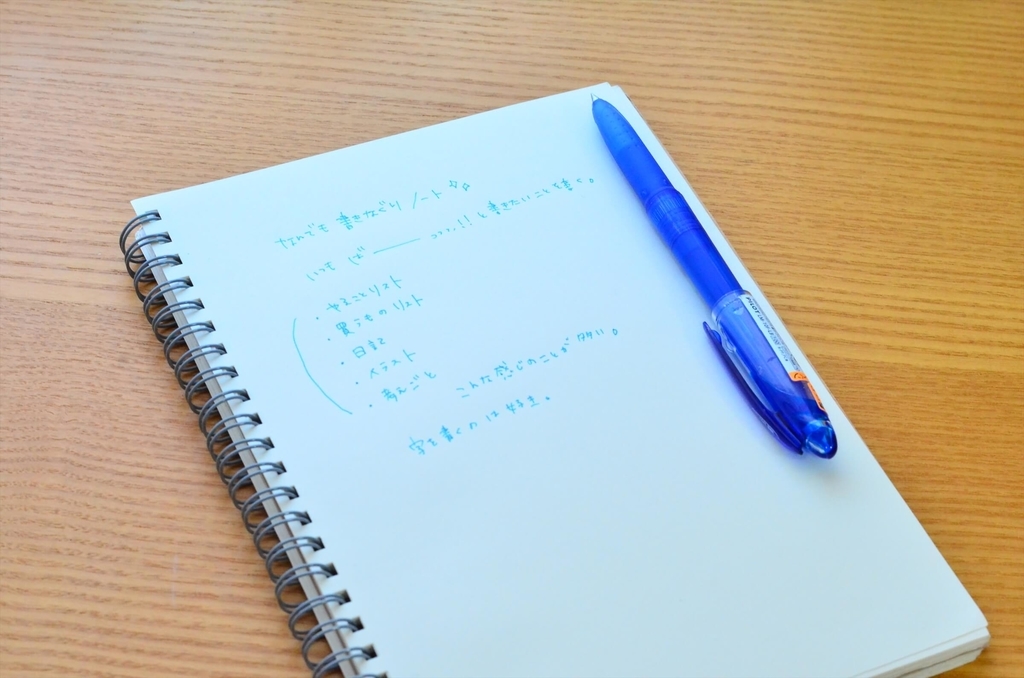 なんでも書きなぐりノート
いつも ば——— っっっ!!と書きたいことを書く。
・やることリスト
・買うものリスト
・日記
・イラスト
・考えごと
こんな感じのことが多い。
字を書くのは好き。
PILOT